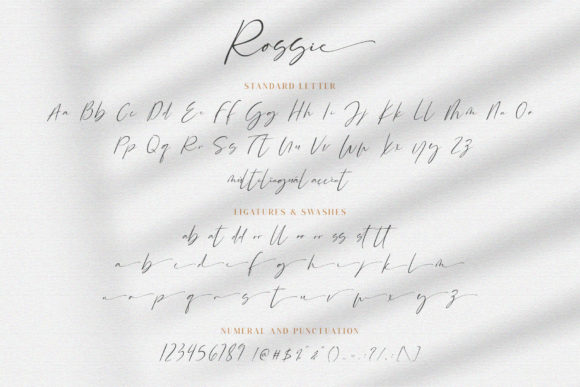 Rossie
STANDARD LETTER
Aa Bb Cc Dd Ee Ff Gg Hh Ii Jj Kk Ll Mm Nn Oo
Pp Qq Rr Ss Tt Uu Vv Ww Xx Yy Zz
multilingual accent
LIGATURES & SWASHES
ab at dd er ll on or ss st tt
a b c d e f g h i j k l m
n o p q r s t u v x y z
NUMERAL AND PUNCTUATION
123456789